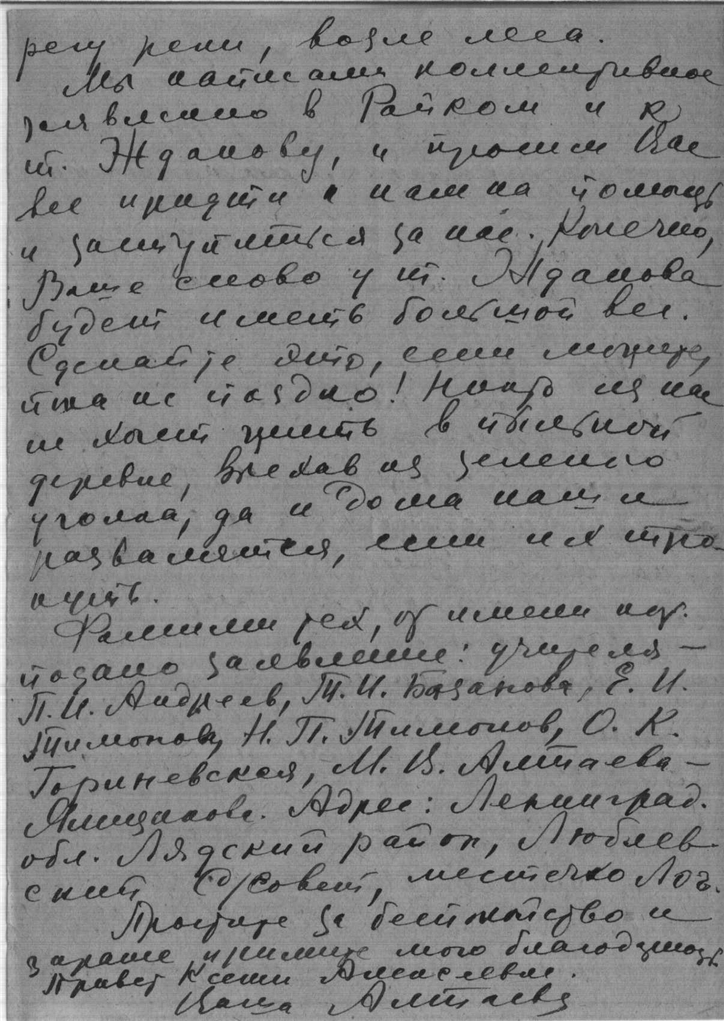 регу реки, возле леса.
Мы написали коллективное
заявление в Райком и к
т. Жданову, и просим Вас
все придти к нам на помощь
и заступиться за нас. Конечно,
Ваше слово у т. Жданова
будет иметь большой вес.
Сделайте это, если можете,
пока не поздно! Никто из нас
не хочет жить в пыльной
деревне, выехав из зеленого
уголка, да и дома наши
развалятся, если их тро-
нуть.
Фамилии тех, от имени кот.
подано заявление: учителя –
П. И. Андреев, Т. И. Базанова, Е. И.
Тимонова, Н. П. Тимонов, О. К.
Гориневская, М. В. Алтаева –
Ямщикова. Адрес: Ленинград.
обл. Лядский район, Люблев
ский С/совет, местечко Лог.
Простите за беспокойство и
заранее примите мою благодарность
Привет Ксении Алексеевне.
Ваша Алтаева